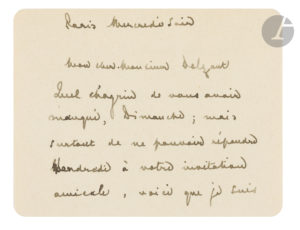 Paris Mercredi Soir
Mon cher Monsieur
Quel chagrin de vous avoir
manqué, Dimanche ; mais
surtout de ne pouvoir répondre
Vendredi à votre invitation
amicale, voici que je suis